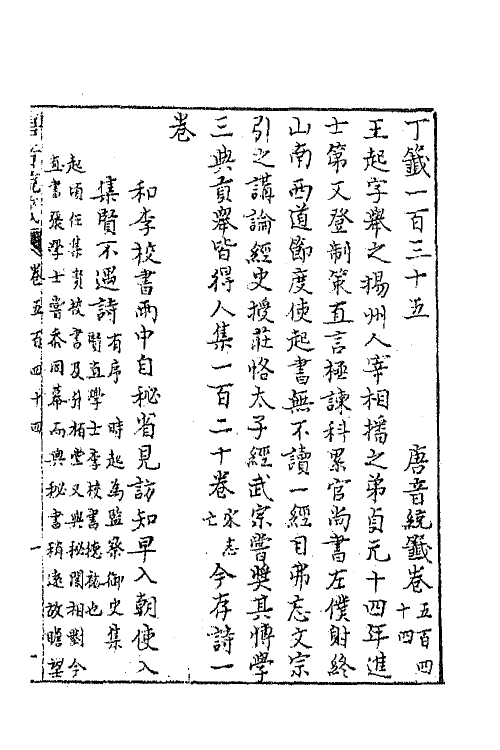 丁籤一百三十五　唐音統籤卷五百四十四
王起字舉之揚州人宰相播之弟貞元十四年進
士第又登制策直言極諫科累官尚書左僕射終
山南西道節度使起書無不讀一經目弗忘文宗
引之講論經史授莊恪太子經武宗嘗奨其博學
三典貢舉皆得人集一百二十卷宋志亡今存詩一
卷
和李校書雨中自秘省見訪知早入朝便入
集賢不遇詩有序　時起為監察御史集賢直學士李校書德裕也
起頃任集賢校書及升栢堂又與秘閣相對今
直書張學士嘗忝同幕而與秘書稍遠故瞻望
唐音統籤　卷五百四十四　一